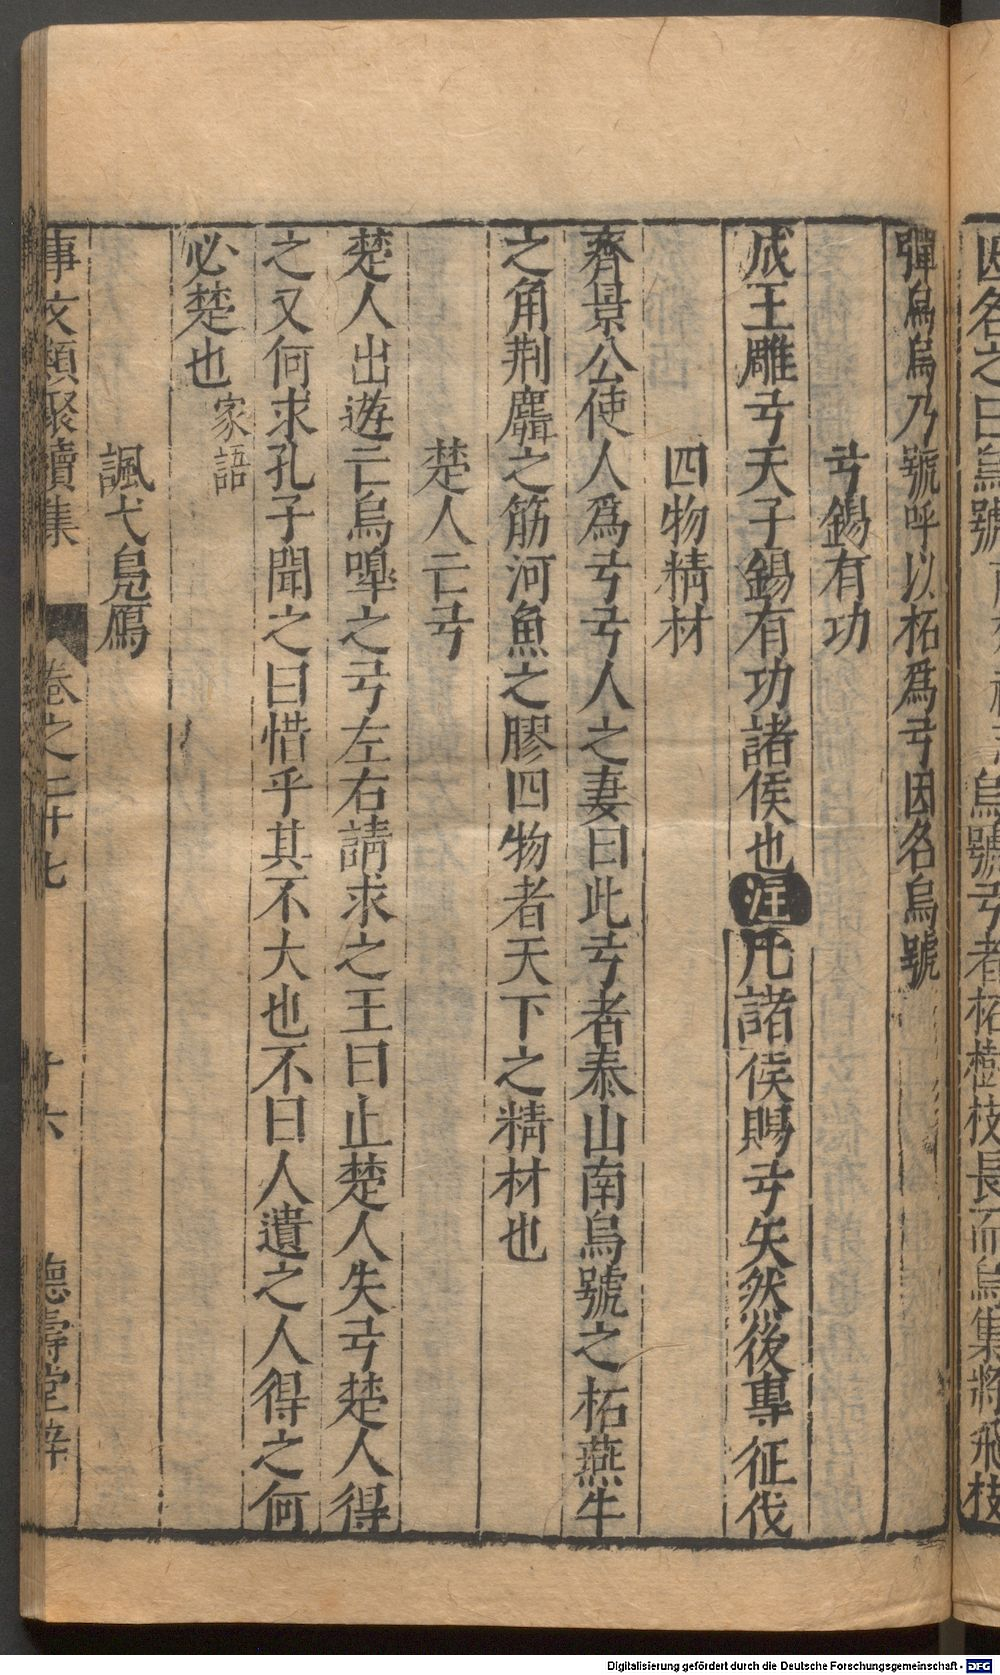 因名之曰烏號
烏號弓者柘樹枝長而烏集將飛枝
彈烏烏乃號呼以柘爲弓因名烏號
弓錫有功
成王雕弓天子錫有功諸侯也注凡諸侯賜弓矢然後專征伐
四物精材
齊景公使人爲弓弓人之妻曰此弓者泰山南烏號之柘燕牛
之角荆麋之筋河魚之膠四物者天下之精材也
楚人亡弓
楚人出遊亡烏嘷之弓左右請求之王曰止楚人失弓楚人得
之又何求孔子聞之曰惜乎其不大也不曰人遺之人得之何
必楚也家語
諷弋鳧鴈
事文類聚續集 卷之二十七 十六 德壽堂梓
Digitalisierung gefördert durch die Deutsche Forschungsgemeinschaft - DFG